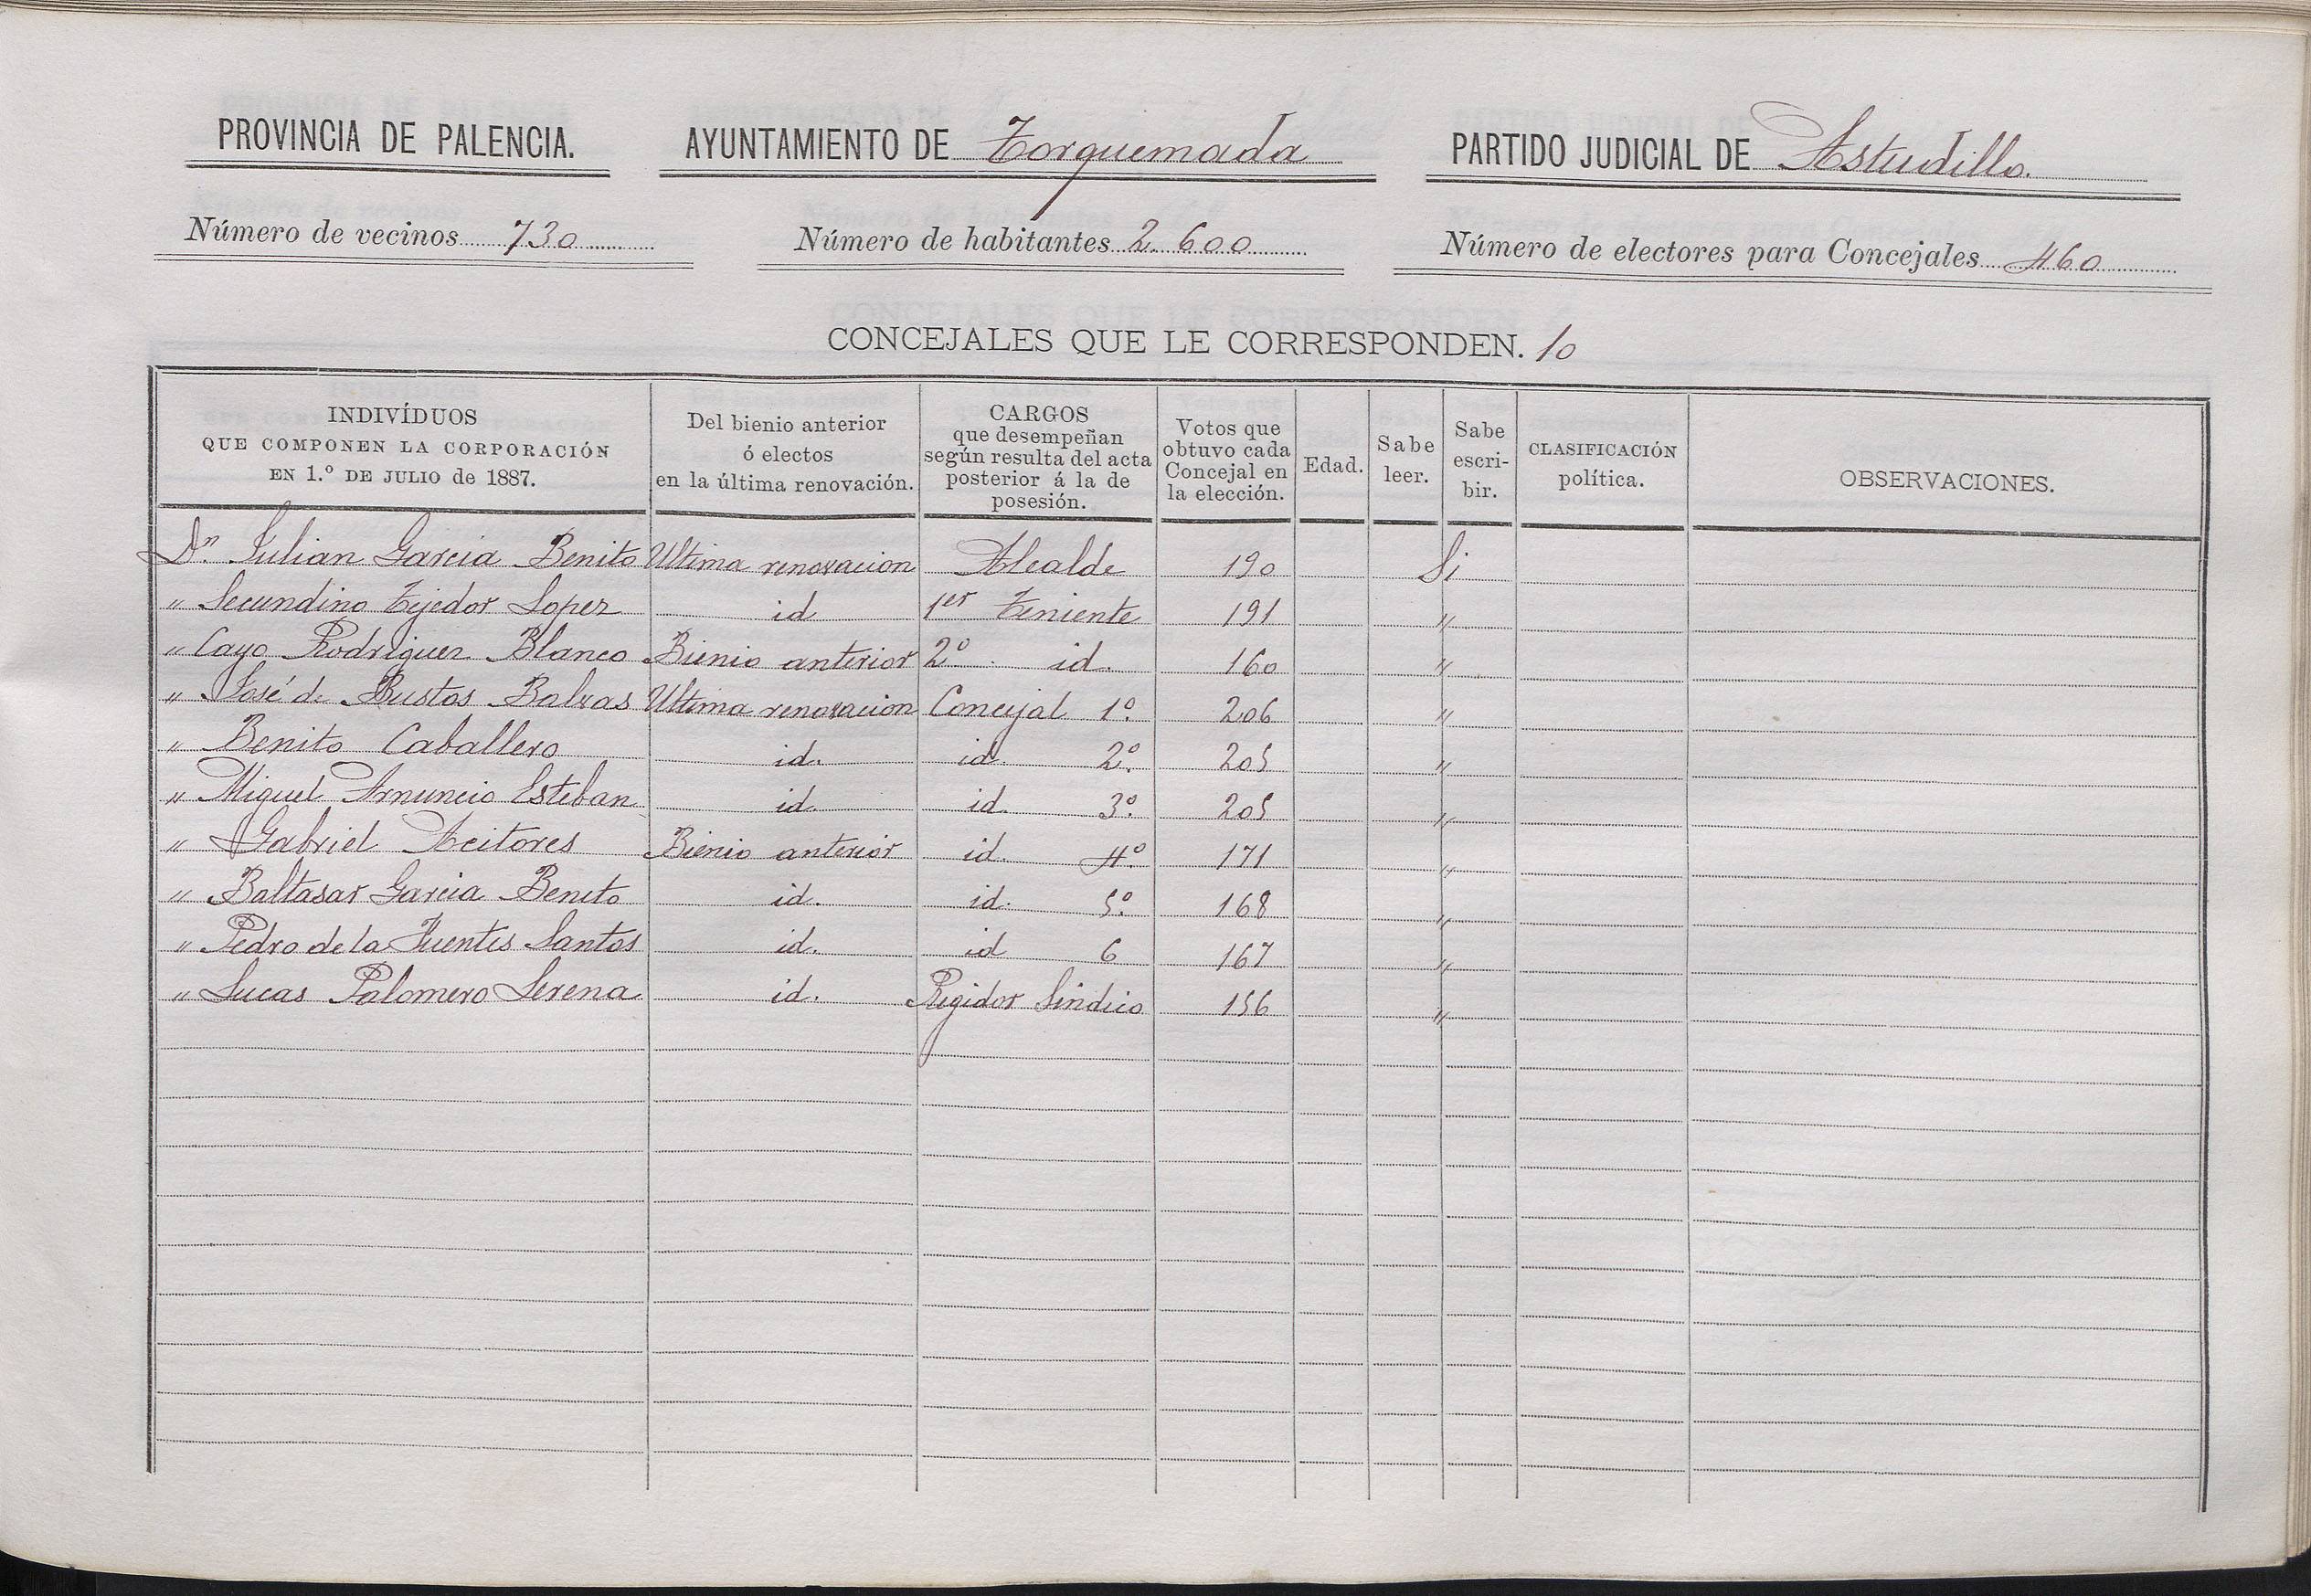 PROVINCIA DE PALENCIA. AYUNTAMIENTO DE Torquemada PARTIDO JUDICIAL DE Astudillo.
Número de vecinos 730 Número de habitantes 2.600 Número de electores para Concejales 460
CONCEJALES QUE LE CORRESPONDEN. 10
INDIVÍDUOS
QUE COMPONEN LA CORPORACIÓN
EN 1.º DE JULIO de 1887.
Del bienio anterior
ó electos
en la última renovación.
CARGOS
que desempeñan
según resulta del acta
posterior á la de
posesión.
Votos que
obtuvo cada
Concejal en
la elección.
Edad.
Sabe
leer.
Sabe
escri-
bir.
CLASIFICACIÓN
política.
OBSERVACIONES.
Dn. Julian Garcia Benito Ultima renovacion Alcalde 190 Si
" Secundino Tejedor Lopez id 1er Teniente 191 "
" Cayo Rodriguez Blanco Bienio anterior 2º id. 160 "
" José de Bustos Balxas Ultima renovacion Concejal 1º. 206 "
" Benito Caballero id. id. 2º. 205 "
" Miguel Arnuncio Esteban id. id. 3º. 205 "
" Gabriel Aeitores Bienio anterior id. 4º. 171 "
" Baltasar Garcia Benito id. id. 5º. 168 "
" Pedro de la Fuentes Santos id. id 6 167 "
" Lucas Palomero Serena id. Regidor Sindico 156 "